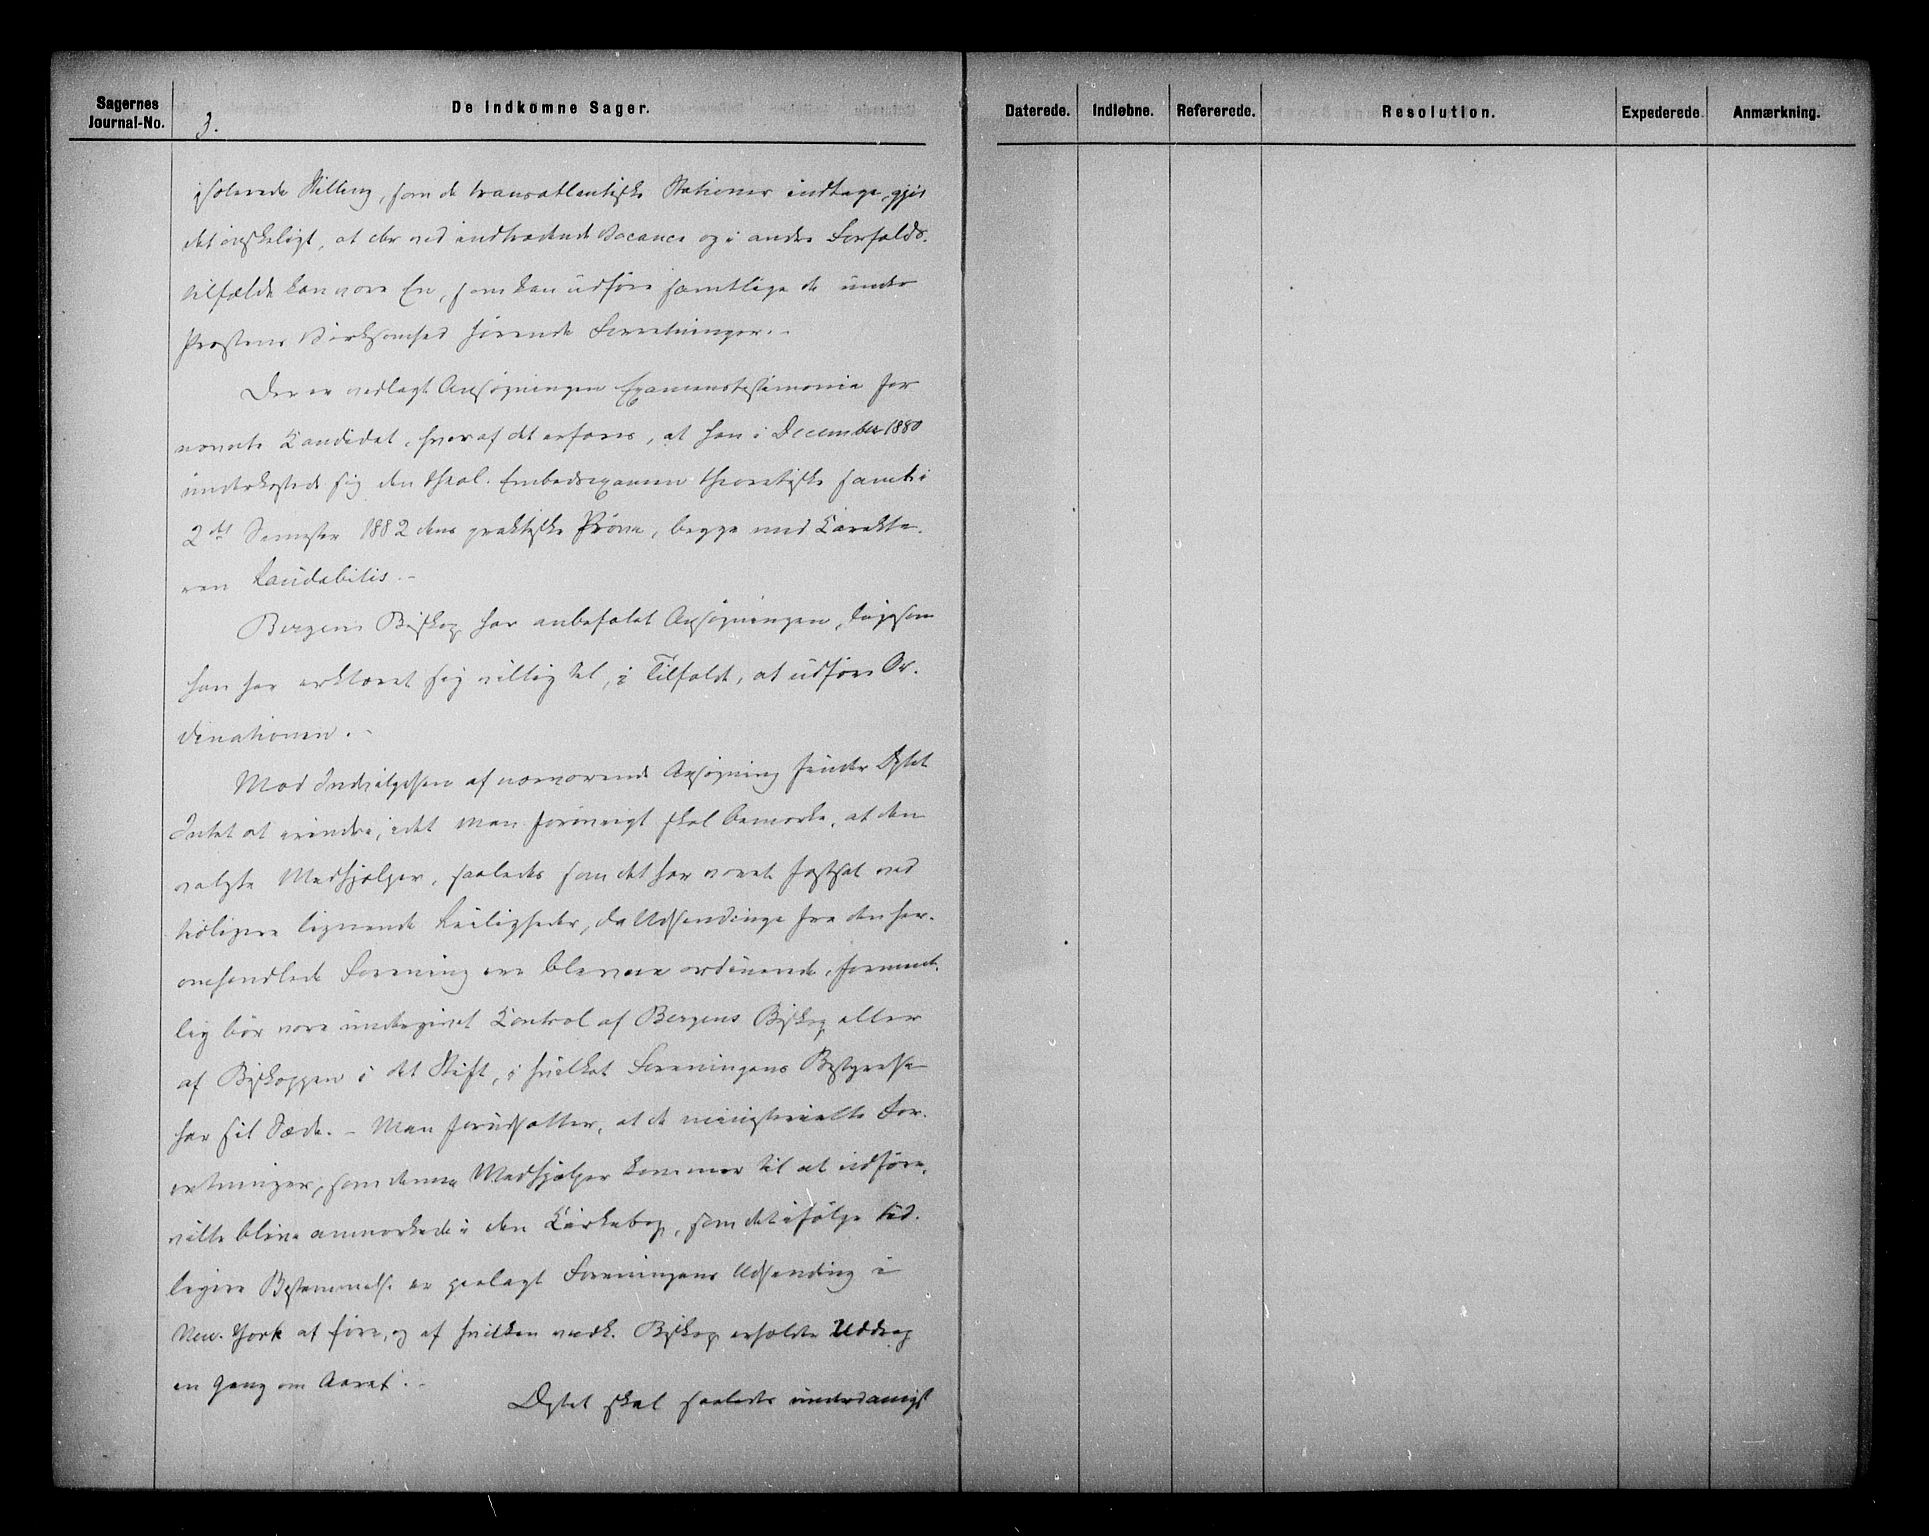 Sagernes
Journal-No.
De indkomne Sager.
3.
Daterede.
Indløbne.
Refererede.
Resolution.
Expederede
Anmærkning.
isolerede Stilling, som de transatlantiske Stationer indtage, gjør
det ønskeligt, at der ved indtrædende Vacance og i andre Forfalds-
tilfælde kan være En, som kan udføre samtlige de under
Præstens Virksomhed hørende Forretninger. -
Der er vedlagt Ansøgningen Examenstestimonia for
nævnte Kandidat, hvoraf det erfares, at han i December 1880
underkastede sig den theol. Embedsexamen theoretiske samt i
2det Semester 1882 dens praktiske Prøve, begge med Karakte-
ren Laudabilis. -
Bergens Biskop har anbefalet Ansøgningen, ligesom
han har erklæret sig villig til, i Tilfælde, at udføre Or-
dinationen. -
Mod Indvilgelsen af nærværende Ansøgning finder Dptet
Intet at erindre, idet man forøvrigt skal bemærke, at den
valgte Medhjælper, saaledes som det har været fastsat ved
tidligere lignende Leiligheder, da Udsendinge fra den her-
omhandlede Forening ere blevne ordinerede, forment-
lig bør være undergivet Kontrol af Bergens Biskop eller
af Biskoppen i det Stift, i hvilket Foreningens Bestyrelse
har sit Sæde. - Man forudsætter, at de ministerielle For-
retninger, som denne Medhjælper kommer til at udføre,
ville blive anmærkede i den Kirkebog, som det ifølge tid-
ligere Bestemmelse er paalagt Foreningens Udsending i
New-York at føre, og af hvilken vedk. Biskop erholder Uddrag
en Gang om Aaret. -
Dptet skal saaledes underdanigst